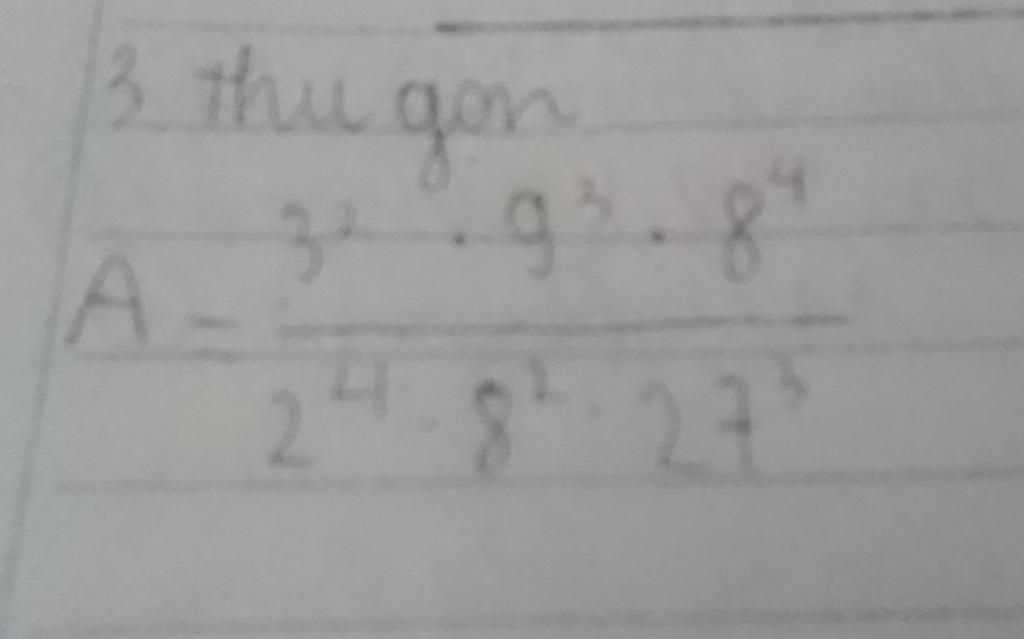 3 thu gon
A = \frac{3^2 \cdot 9^3 \cdot 8^4}{2^4 \cdot 8^2 \cdot 27^3}